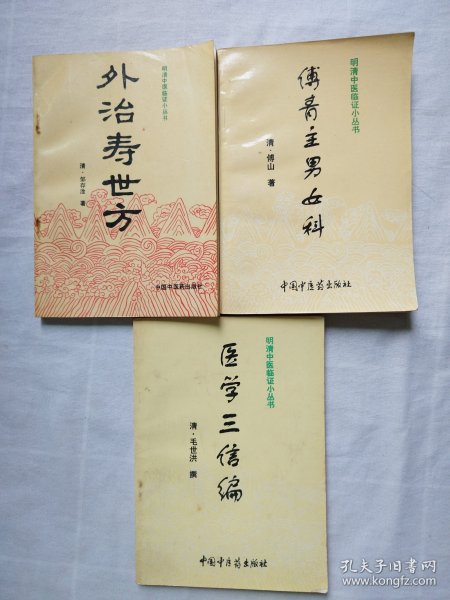 外治寿世方
明清中医临证小丛书
清·邹存淦 著
中国中医药出版社
傅青主男女科
明清中医临证小丛书
清·傅山 著
中国中医药出版社
医学三信编
明清中医临证小丛书
清·毛世洪 撰
中国中医药出版社
孔夫子旧书网
www.kongfz.com